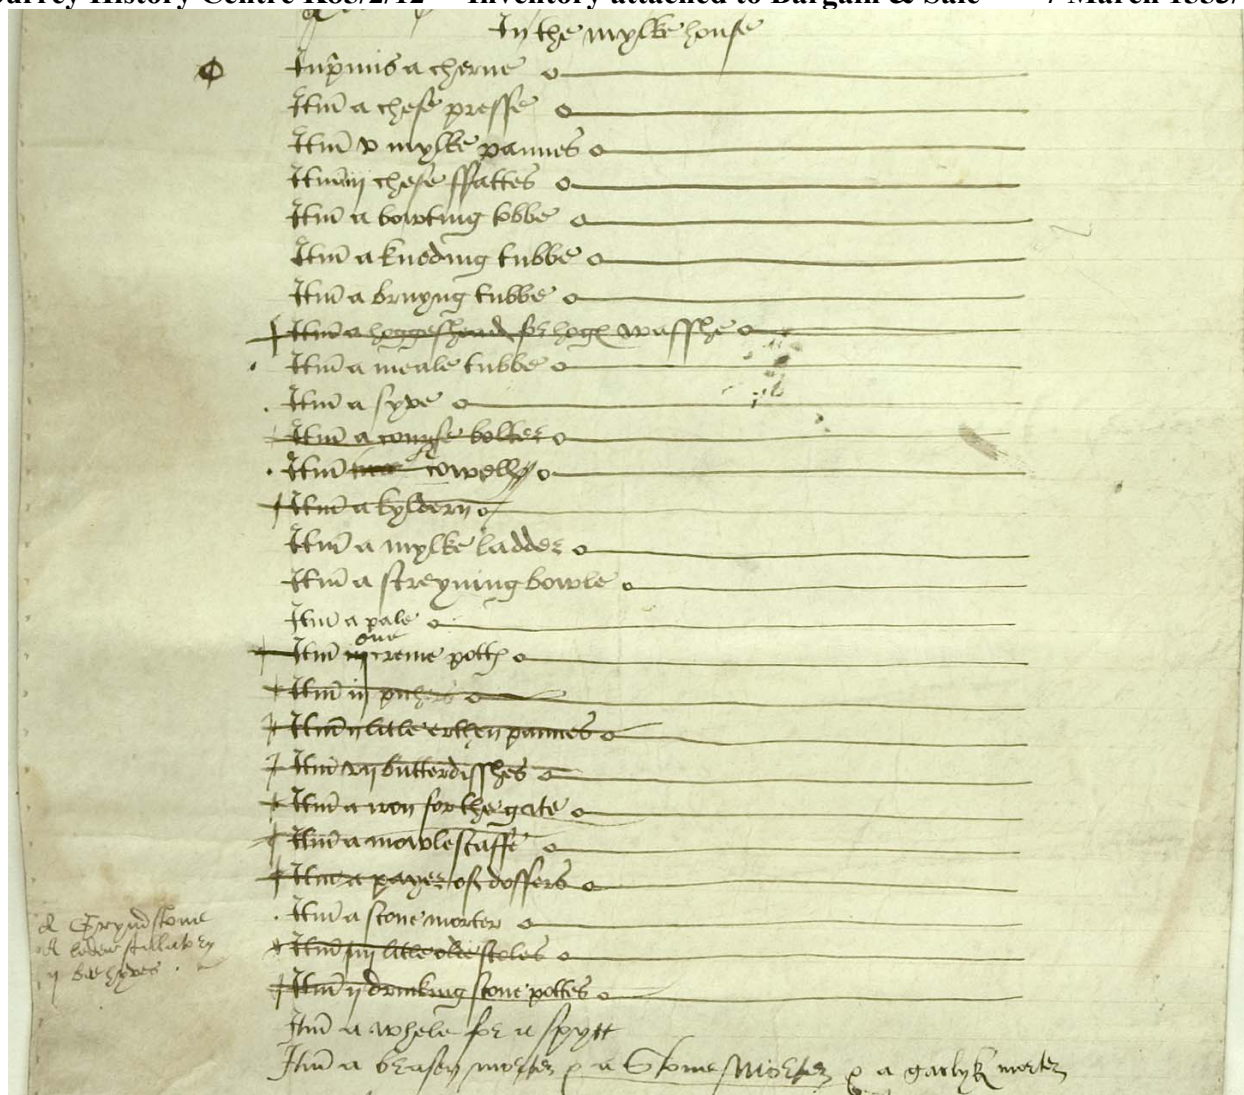 Surrey History Centre K63/2/12 Inventory attached to Bargain & Sale 7 March 1555/
In the mylke house
Inprimis a cherne
Itm a chese presse
Itm v mylke pannes
Itm iij chese ffattes
Itm a bowting tobbe
Itm a kneding tubbe
Itm a bruyng tubbe
Itm a hoggeshead for hogs wasshe
Itm a meale tubbe
Itm a syve
Itm a course bolter
Itm a cowell
Itm a kyldern
Itm a mylke ladder
Itm a streyning bowle
Itm a pale
one
Itm creme pott
Itm iij
Itm ij litle erthen pannes
Itm vij butterdisshes
Itm a iron for the gate
Itm a mowlestaffe
Itm a payer of dossers
Itm a stone morter
A Gryndstone
Itm iiij litle olde stoles
A leden stillatory
ij bee hyves
Itm ij drinking stone pottes
Itm a whele for a spytt
Itm a brasen morter a Stone Morter a garlyk morter